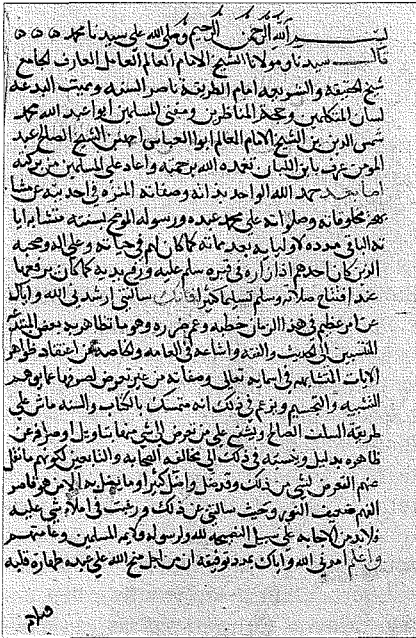 بسم الله الرحمن الرحيم وصلى الله على سيدنا محمد
قال سيدنا ومولانا الشيخ الامام العالم العامل العارف الجامع
شيخ الحقيقة والشريعة امام الطريقة ناصر السنة ومميت البدعة
لسان المتكلمين وحجة المناظرين ومفتى المسلمين ابو عبد الله محمد
شمس الدين بن الشيخ الامام العالم ابو العباس احمد بن الشيخ الصالح عبد
المومن عرف بابن اللبان تغمده الله برحمته واعاد على المسلمين من بركته
اما بعد حمد الله الواحد بذاته وصفاته المنزه في احديته عن مشا
بهة مخلوقاته وصلواته على محمد عبده ورسوله الموضح لسنته متشابه ايا
ته الباقي مدده لاوليايه بعد مماته كما كان لهم في حياته وعلى اله وصحبه
الذين كان احدهم اذا زاره في قبره سلم عليه ورفع يديه كما كان يرفعها
عند افتتاح صلاته وسلم تسليما كثيرا فانك سالتني ارشدني الله واياك
عن امر عظم في هذا الزمان خطبه وعم ضرره وهو ما تظاهر به بعض
المنتسبين الى الحديث والفقه واشاعه في العامة والخاصة من اعتقاد ظواهر
الايات المتشابهة في اسمايه تعالى وصفاته من غير تعرض لصرفها عما يوهم
التشبيه والتجسيم ويزعم في ذلك انه متمسك بالكتاب والسنة ماش على
طريقة السلف الصالح ويشنع على من تعرض الى شي منها بتاويل او صرفه عن
ظاهره بدليل وينسبه في ذلك الى مخالفة الصحابة والتابعين لكونهم ما نقل
عنهم التعرض لشي من ذلك وقد ضل واضل كثيرا وما يضل به الا من هو قاصر
الفهم ضعيف النور وحيث سالتني عن ذلك ورغبت في املاء شي عليه
فلا بد من الاجابة على سبيل النصيحة لله ولرسوله وايمة المسلمين وعامتهم
واعلم امدني الله واياك بمدد توفيقه ان من اجل منح الله على عبده طهارة قلبه